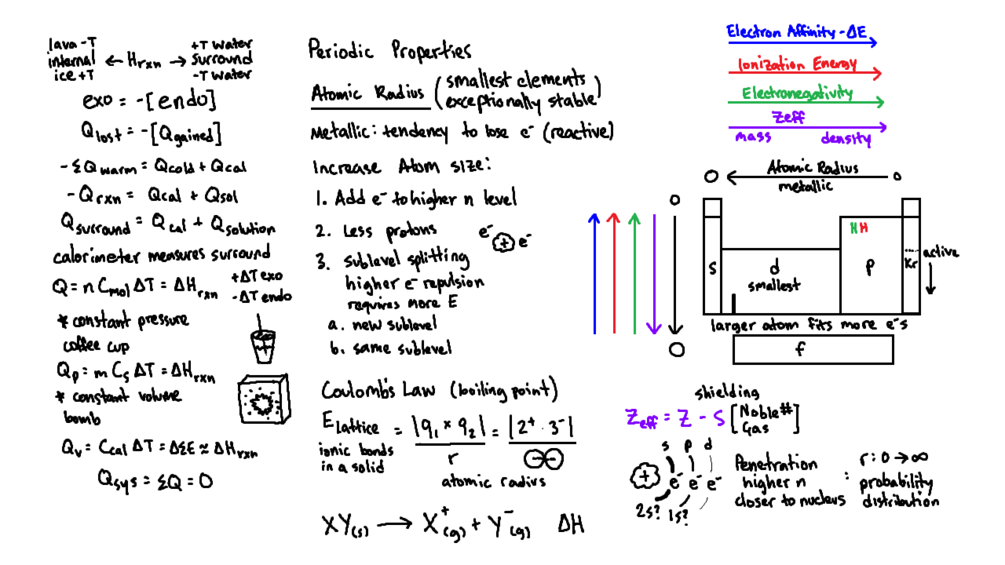 lava -T +T water
internal ← Hrxn → surround
ice +T -T water
exo = -[endo]
Qlost = -[Qgained]
-ΣQwarm = Qcold + Qcal
-Qrxn = Qcal + Qsol
Qsurround = Qcal + Qsolution
calorimeter measures surround
Q = n Cmol ΔT = ΔHrxn +ΔT exo
-ΔT endo
* constant pressure
coffee cup
Qp = m Cs ΔT = ΔHrxn
* constant volume
bomb
Qv = Ccal ΔT = ΔΣE ≈ ΔHrxn
Qsys = ΣQ = 0
Periodic Properties
Atomic Radius (smallest elements
exceptionally stable)
Metallic: tendency to lose e⁻ (reactive)
Increase Atom size:
1. Add e⁻ to higher n level
2. Less protons
e⁻ + e⁻
3. sublevel splitting
higher e⁻ repulsion
requires more E
a. new sublevel
b. same sublevel
Coulomb's Law (boiling point)
Elattice = |q₁ × q₂| / r = |2⁺ · 3⁻|
ionic bonds
in a solid
atomic radius
XY(s) → X⁺(g) + Y⁻(g) ΔH
Electron Affinity -ΔE
Ionization Energy
Electronegativity
Zeff
mass density
Atomic Radius
metallic
H H
s d p Kr active
smallest
larger atom fits more e⁻s
f
shielding
Zeff = Z - S [Noble#
Gas]
s p d
+ e⁻ e⁻ e⁻
2s? 1s?
Penetration
higher n
closer to nucleus
: r: 0 → ∞
probability
distribution